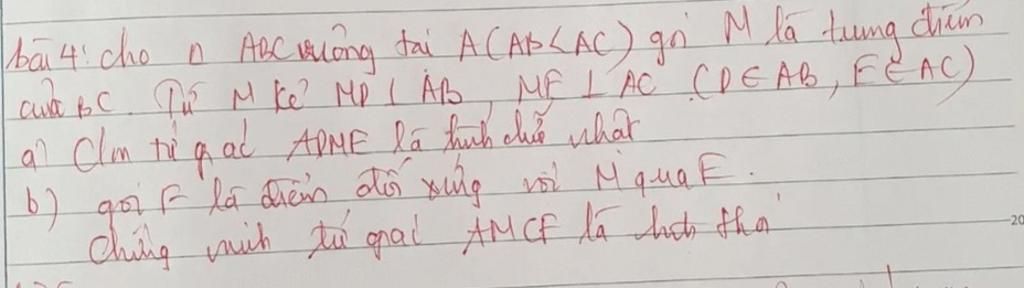 bài 4: cho △ ABC vuông tại A (AB < AC) gọi M là trung điểm
của BC. Từ M kẻ MD ⊥ AB, ME ⊥ AC (D ∈ AB, E ∈ AC)
a) Cm tứ giác ADME là hình chữ nhật
b) gọi F là điểm đối xứng với M qua E.
Chứng minh tứ giác AMCF là hình thoi
20